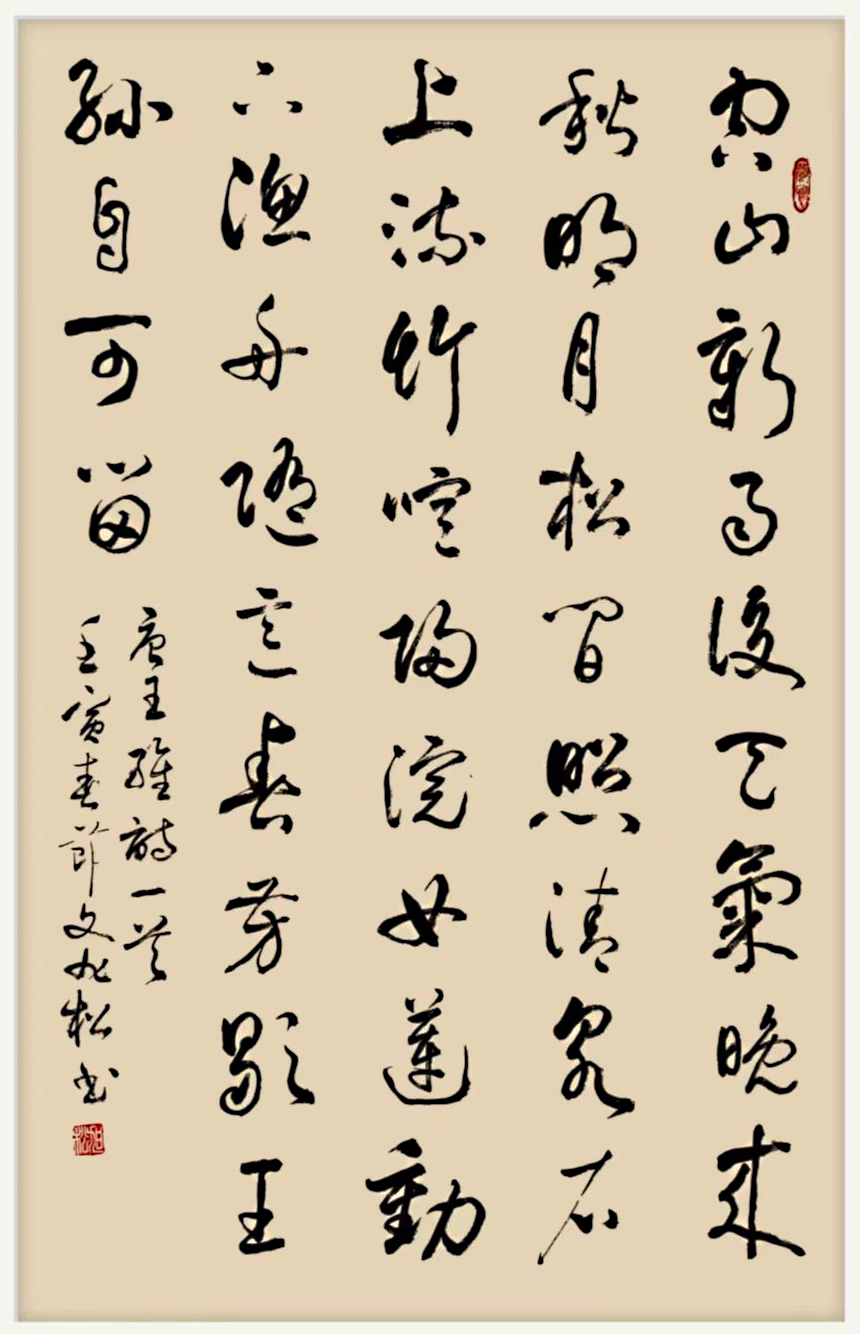 空山新雨後天氣晚來
秋明月松間照清泉石
上流竹喧歸浣女蓮動
下漁舟隨意春芳歇王
孫自可留
唐王維詩一首
壬寅春節文旭松書
旭松